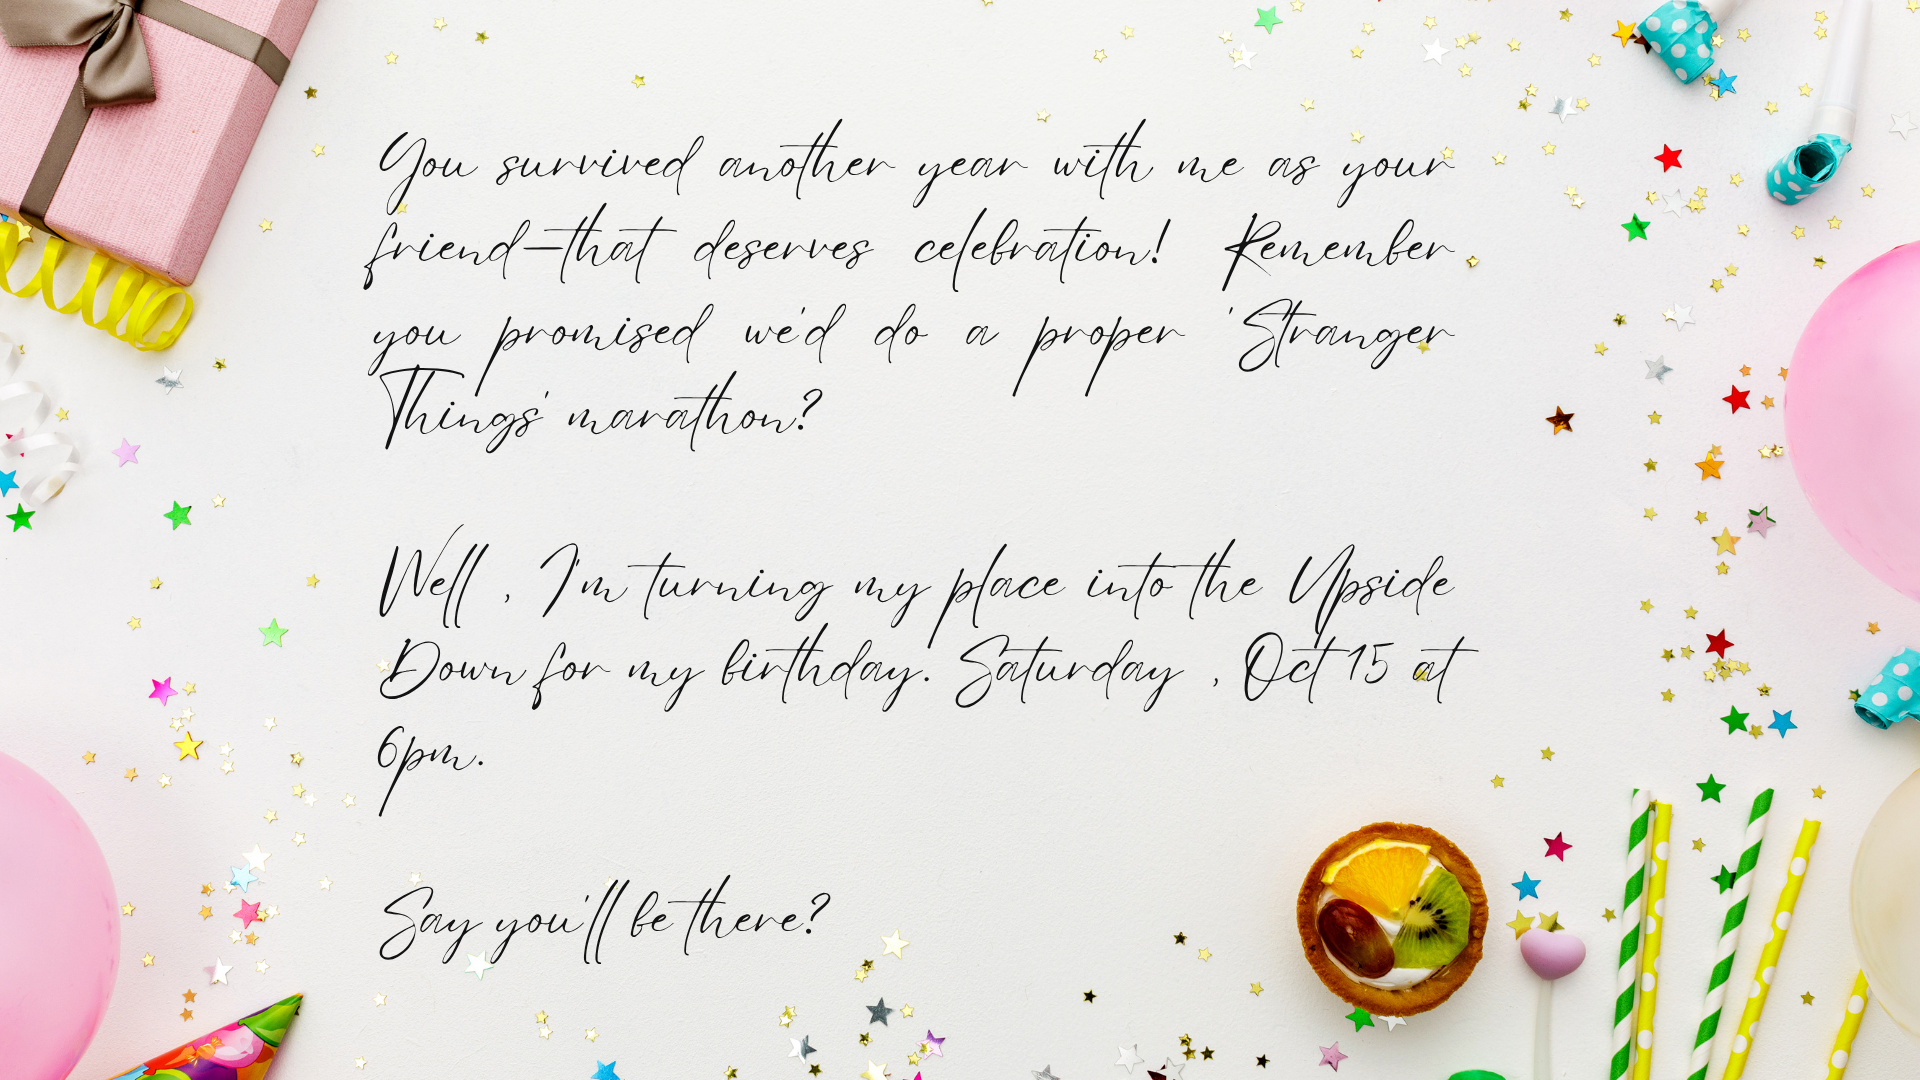 You survived another year with me as your
friend—that deserves celebration! Remember
you promised we'd do a proper 'Stranger
Things' marathon?
Well , I'm turning my place into the Upside
Down for my birthday. Saturday , Oct 15 at
6pm.
Say you'll be there?